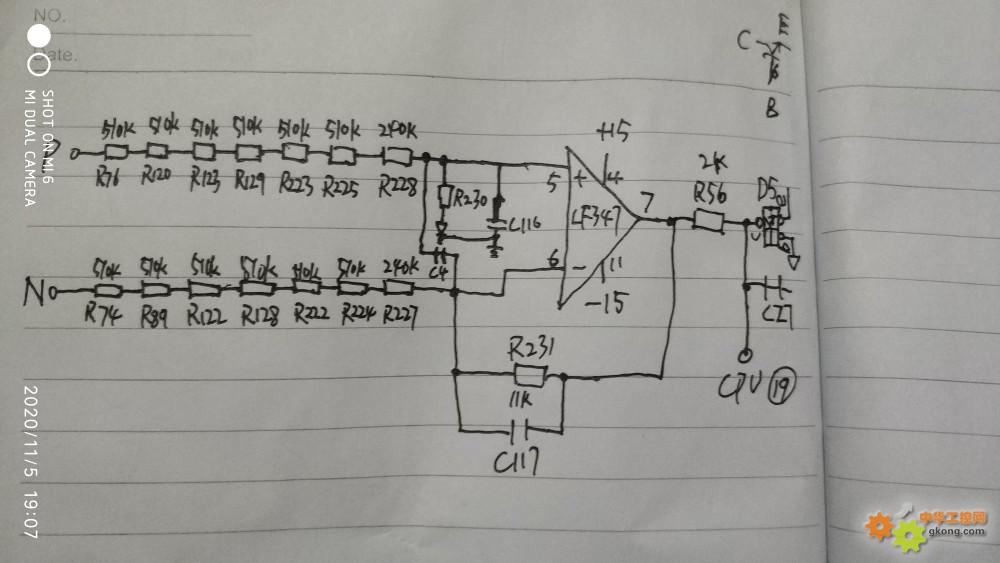 NO.
Date.
SHOT ON MI 6
MI DUAL CAMERA
2020/11/5 19:07
C
B
P
510k 510k 510k 510k 510k 510k 240k
R76 R120 R123 R129 R223 R225 R228
R230
C116
C4
N
510k 510k 510k 510k 510k 510k 240k
R74 R89 R122 R128 R222 R224 R227
+15
4
5 +
LF347
7
6 -
11
-15
2K
R56
D5
C27
CPU 19
R231
11K
C117
中华工控网
gkong.com